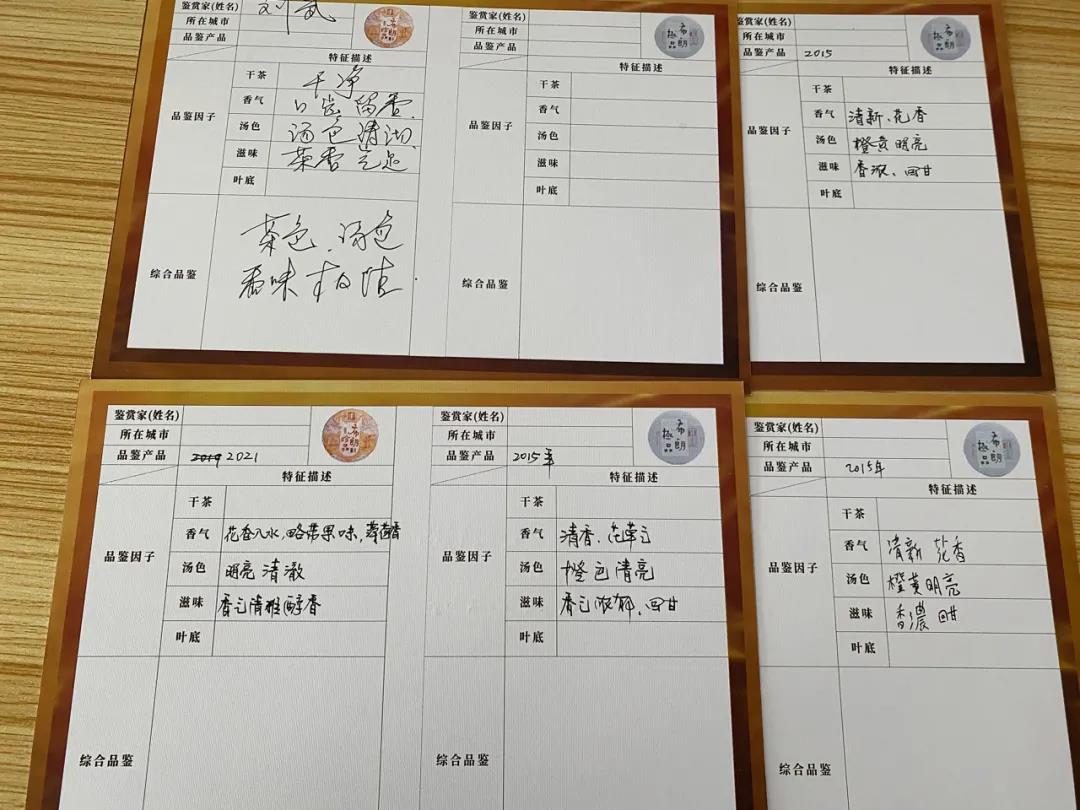 鉴赏家(姓名) 刘武
所在城市
品鉴产品
特征描述
品鉴因子
干茶 干净
香气 口齿留香.
汤色 汤色清沏.
滋味 茶香气足
叶底
综合品鉴
茶色、汤色
香味
鉴赏家(姓名)
所在城市
品鉴产品
希朗
极品
特征描述
品鉴因子
干茶
香气
汤色
滋味
叶底
综合品鉴
鉴赏家(姓名)
所在城市
品鉴产品 2015
希朗
极品
特征描述
品鉴因子
干茶
香气 清新、花香
汤色 橙黄明亮
滋味 香浓、回甘
叶底
综合品鉴
鉴赏家(姓名)
所在城市
品鉴产品 2021
希朗
珍品
特征描述
品鉴因子
干茶
香气 花香入水,略带果味,
汤色 明亮清澈
滋味 香气清雅醇香
叶底
综合品鉴
鉴赏家(姓名)
所在城市
品鉴产品 2015年
希朗
极品
特征描述
品鉴因子
干茶
香气 清香、花草气
汤色 橙色清亮
滋味 香气浓郁、回甘
叶底
综合品鉴
鉴赏家(姓名)
所在城市
品鉴产品 2015年
希朗
极品
特征描述
品鉴因子
干茶
香气 清新 花香
汤色 橙黄明亮
滋味 香濃 回甘
叶底
综合品鉴